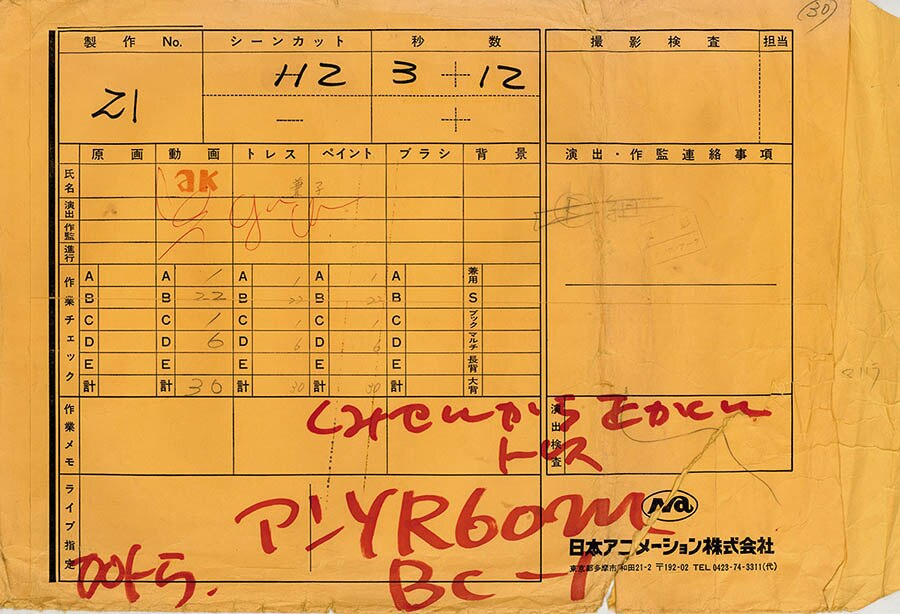 30
製作 No. シーンカット 秒数 撮影検査 担当
21 H2 3 12
原画 動画 トレス ペイント ブラシ 背景 演出・作監連絡事項
氏名 ak
演出
作監
進行
作業チェック
A A 1 A 1 A 1 A 兼用
B B 22 B 22 B 22 B S
C C 1 C 1 C 1 C ブック
D D 6 D 6 D 6 D マルチ
E E E E E 長背
計 計 30 計 30 計 30 計 大背
作業メモ 演出検査
トレス
ライブ指定
YR60
BC-1
Na
日本アニメーション株式会社
東京都多摩市和田21-2 〒192-02 TEL 0423-74-3311(代)